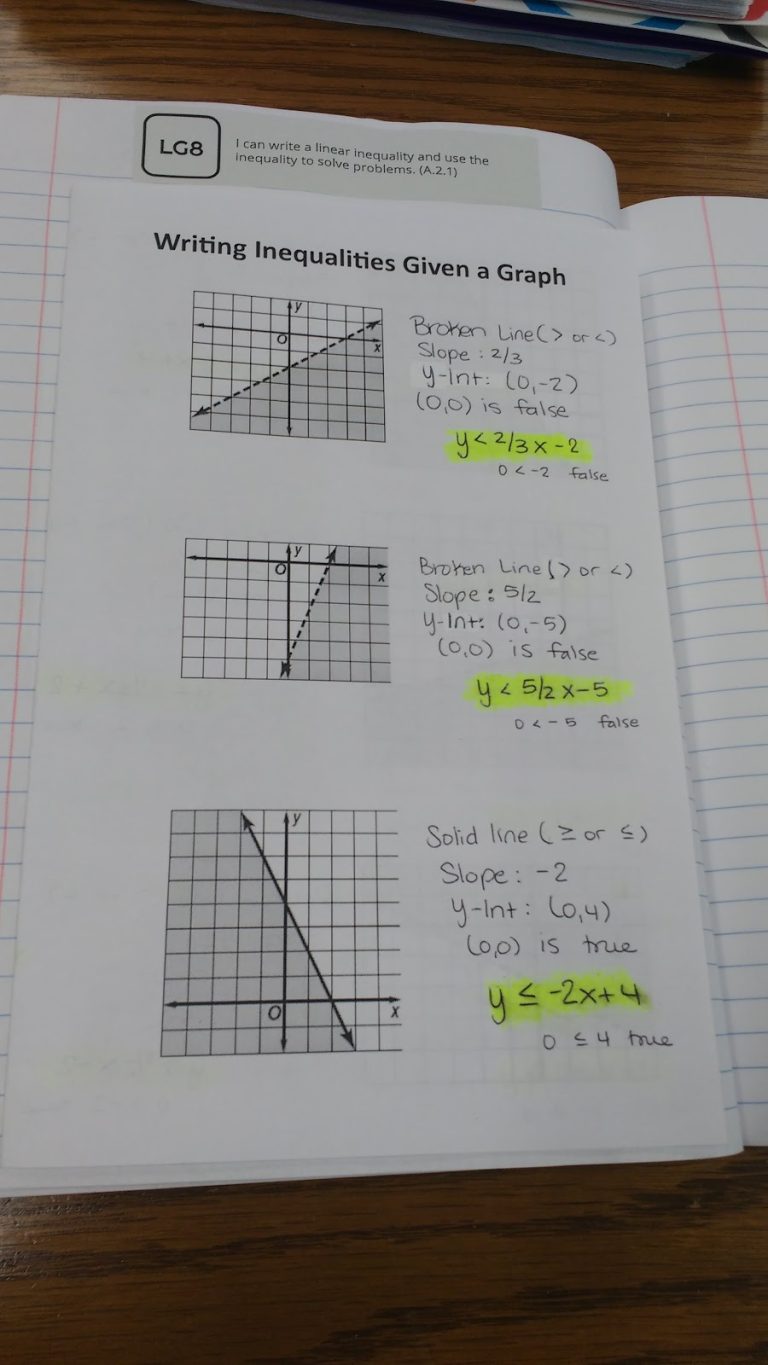 LG8
I can write a linear inequality and use the
inequality to solve problems. (A.2.1)
Writing Inequalities Given a Graph
y
O
x
Broken Line (> or <)
Slope : 2/3
y-Int: (0,-2)
(0,0) is false
y < 2/3 x - 2
0 < -2 false
y
O
x
Broken Line (> or <)
Slope : 5/2
y-Int: (0,-5)
(0,0) is false
y < 5/2 x - 5
0 < - 5 false
y
O
x
Solid line ( ≥ or ≤)
Slope: -2
y-Int : (0,4)
(0,0) is true
y ≤ -2x+4
0 ≤ 4 true